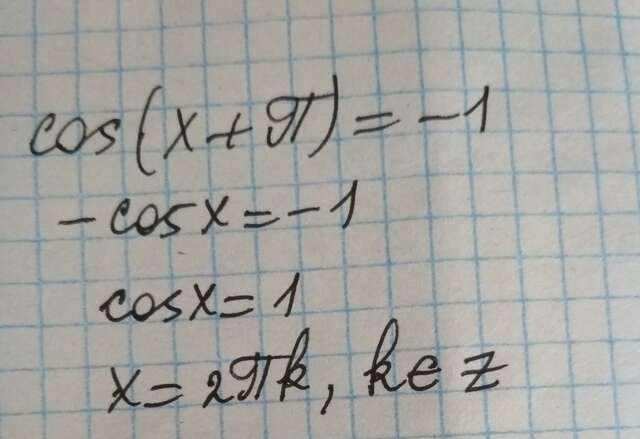 cos(x+π)=-1
-cosx=-1
cosx=1
x=2πk, k∈z